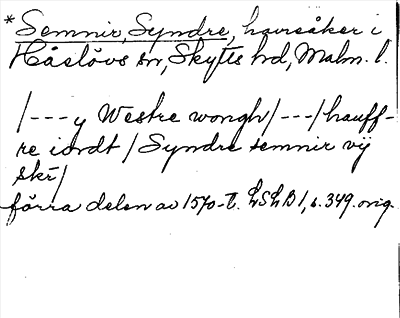 *Semnir, Syndre, havreåker i
Håslövs sn, Skytts hd, Malm. l.
/---y Westre wongh/---/hauff-
re iordt / Syndre semnir vij
skr/
förra delen av 1570-t. LSLB 1, s. 349. orig.